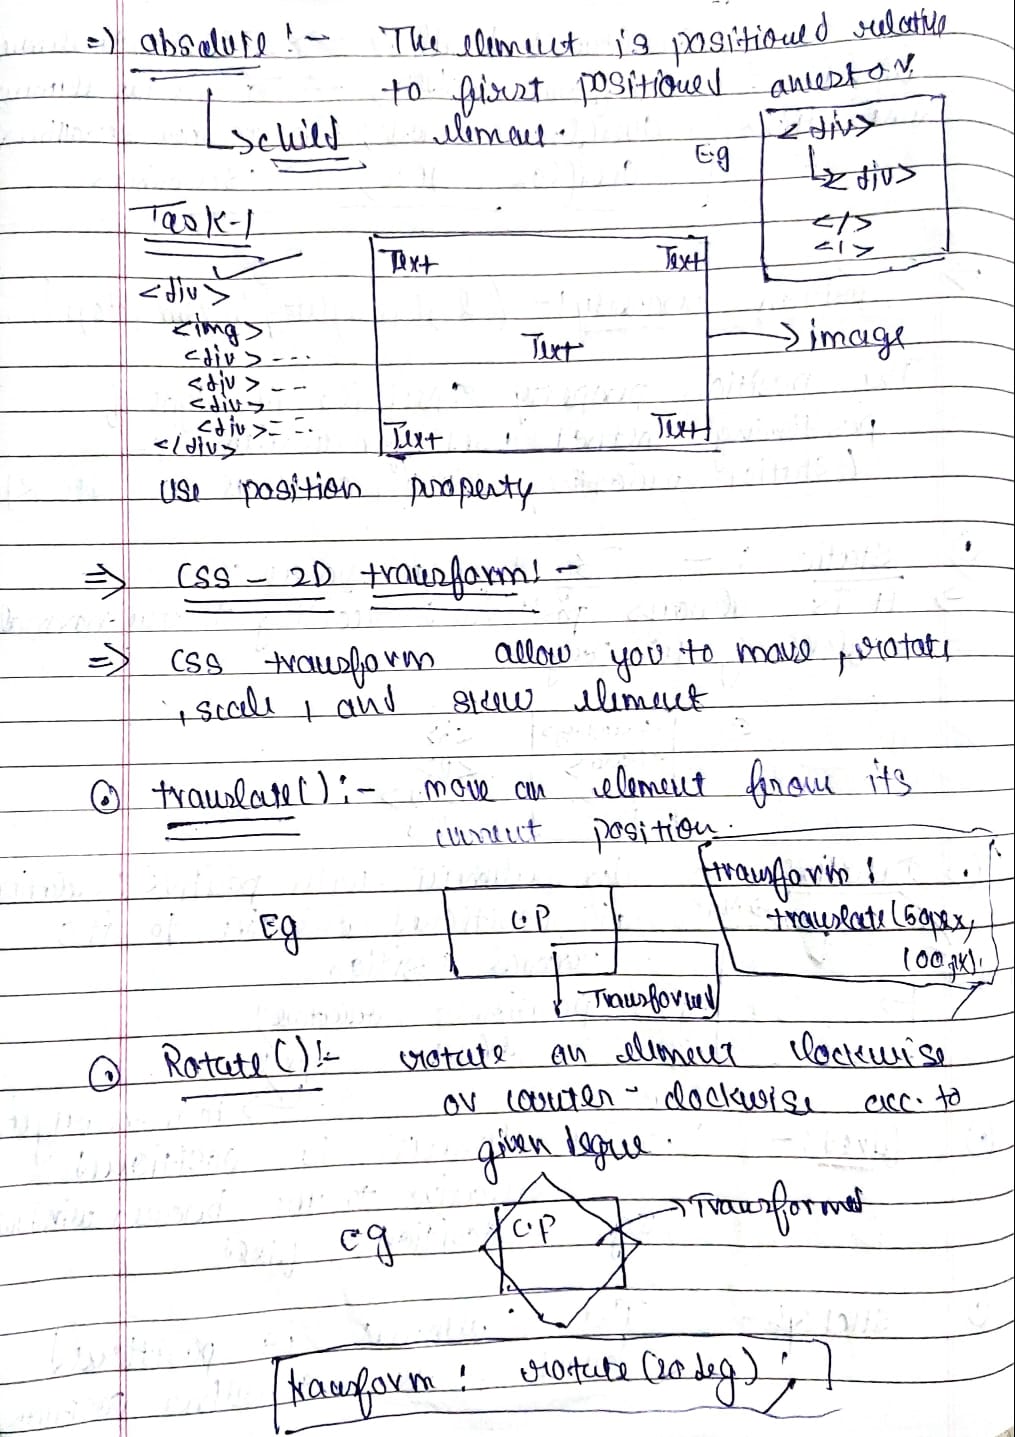 =) absolute :- The element is positioned relative
to first positioned ancestor
↳ child element.
Eg
<div>
↳ <div>
</>
</>
Task-1
<div>
<img>
<div> ---
<div> --
<div>
<div>= =.
</div>
Text Text
Text
Text Text
→ image
use position property
=> CSS - 2D transform :-
=> CSS transform allow you to move, rotate
, scale, and skew element
translate() :- move an element from its
current position.
Eg
C.P
Transformed
transform :
translate(50px,
100px);
Rotate() :- rotate an element clockwise
or counter-clockwise acc. to
given degree.
eg
C.P
→ Transformed
transform : rotate(20deg);